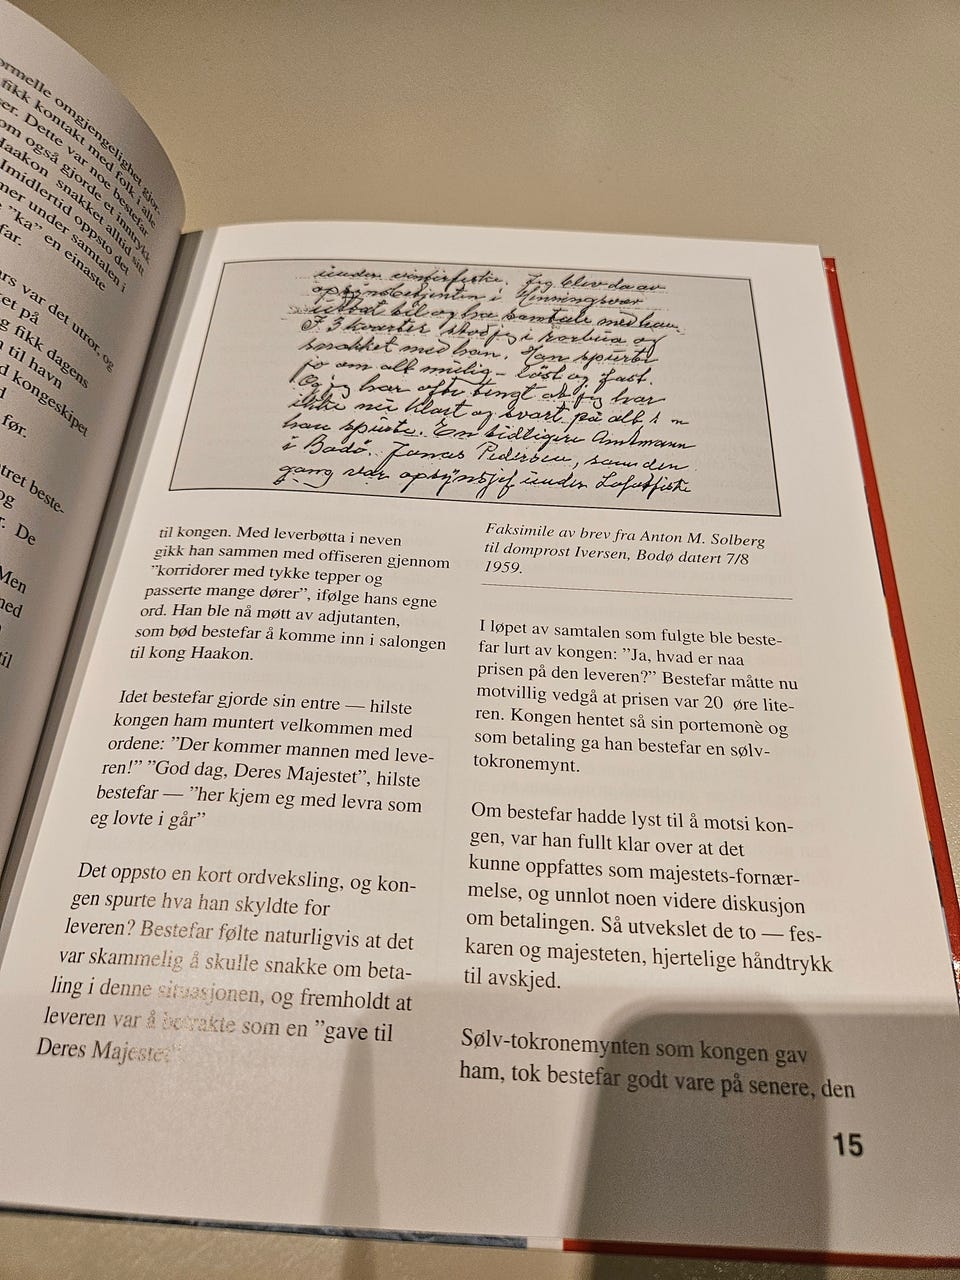 ormelle omgjengelighet gjor-
fikk kontakt med folk i alle
er. Dette var noe bestefar
om også gjorde et inntrykk
Haakon snakket alltid sitt
Imidlertid oppsto det
mer under samtalen i
"ka" en einaste
far.
rs var det utror, og
et på
g fikk dagens
n til havn
d kongeskipet
før.
tret beste-
og
r. De
Men
med
til
under vinterfiske. Jeg blev da av
opsynsbetjenten i Henningsvær
utbat til og ha samtale med ham.
I 3 kvarter stod jeg i rorbua og
snakket med han. Han spurte
jo om alt mulig - løst og fast.
Og jeg har ofte tengt at jeg var
ikke nie klart og svart på alt
han spurte. En tidligere Amtmann
i Bodø. Jonas Pedersen, som den
gang var opsynsjef under Lofotfiske
til kongen. Med leverbøtta i neven
gikk han sammen med offiseren gjennom
"korridorer med tykke tepper og
passerte mange dører", ifølge hans egne
ord. Han ble nå møtt av adjutanten,
som bød bestefar å komme inn i salongen
til kong Haakon.
Idet bestefar gjorde sin entre — hilste
kongen ham muntert velkommen med
ordene: "Der kommer mannen med leve-
ren!" "God dag, Deres Majestet", hilste
bestefar — "her kjem eg med levra som
eg lovte i går"
Det oppsto en kort ordveksling, og kon-
gen spurte hva han skyldte for
leveren? Bestefar følte naturligvis at det
var skammelig å skulle snakke om beta-
ling i denne situasjonen, og fremholdt at
leveren var å betrakte som en "gave til
Deres Majestet"
Faksimile av brev fra Anton M. Solberg
til domprost Iversen, Bodø datert 7/8
1959.
I løpet av samtalen som fulgte ble beste-
far lurt av kongen: "Ja, hvad er naa
prisen på den leveren?" Bestefar måtte nu
motvillig vedgå at prisen var 20 øre lite-
ren. Kongen hentet så sin portemonè og
som betaling ga han bestefar en sølv-
tokronemynt.
Om bestefar hadde lyst til å motsi kon-
gen, var han fullt klar over at det
kunne oppfattes som majestets-fornær-
melse, og unnlot noen videre diskusjon
om betalingen. Så utvekslet de to — fes-
karen og majesteten, hjertelige håndtrykk
til avskjed.
Sølv-tokronemynten som kongen gav
ham, tok bestefar godt vare på senere, den
15